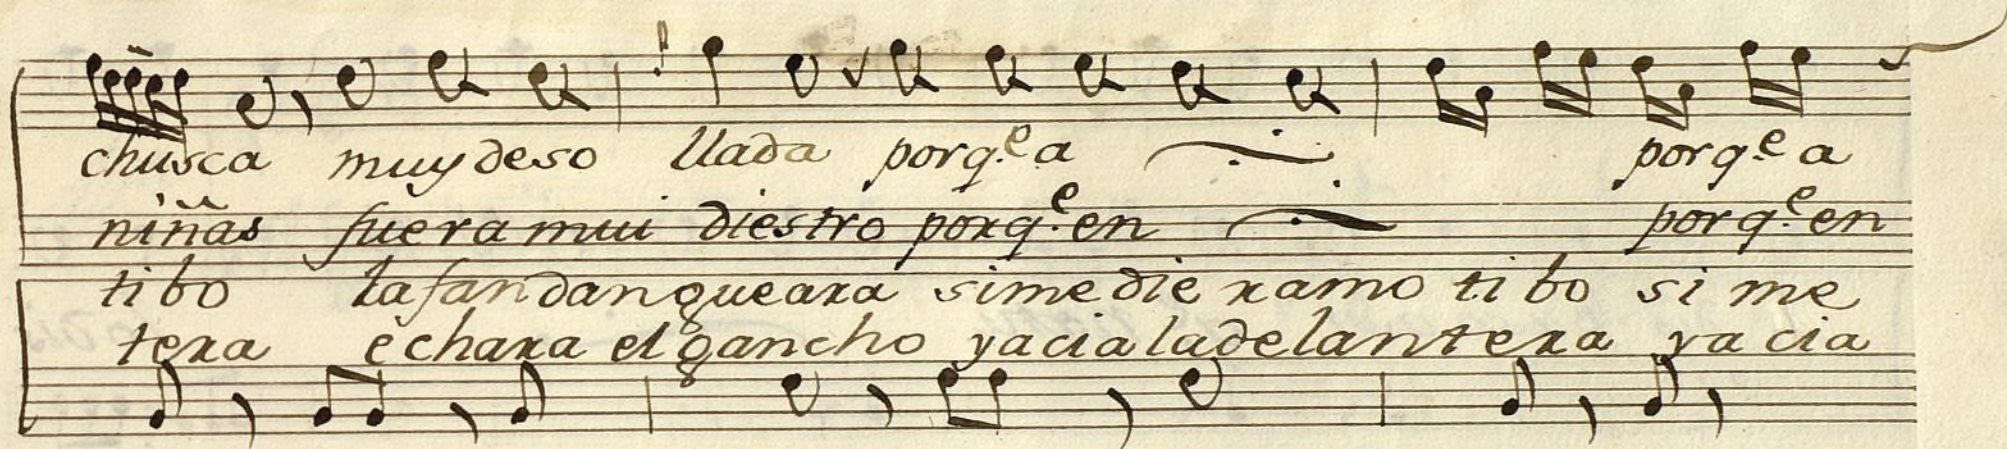 chusca muy deso llada porq.e a porq.e a
niñas fuera mui diestro porq.e en porq.e en
tibo la fandangueara si me die ramo tibo si me
tera echara el gancho y acia la delantera y acia